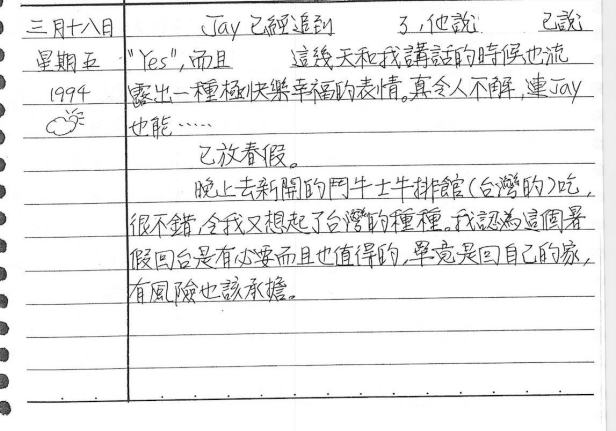 三月十八日
星期五
1994
Jay 已經追到 了,他說 已說
"Yes",而且 這幾天和我講話的時候也流
露出一種極快樂幸福的表情。真令人不解,連Jay
也能……
已放春假。
晚上去新開的鬥牛士牛排館(台灣的)吃,
很不錯,令我又想起了台灣的種種。我認為這個暑
假回台是有必要而且也值得的,畢竟是回自己的家,
有風險也該承擔。